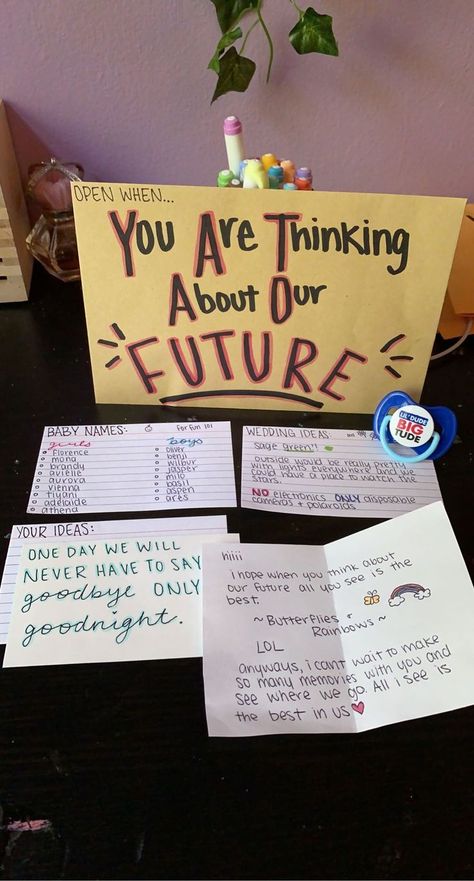 OPEN WHEN...
You Are Thinking
About Our
FUTURE
BABY NAMES:
For Fun lol
girls
Florence
mona
brandy
avielle
aurora
vienna
tiyani
adelaide
athena
boys
oliver
benji
wilbur
jasper
milo
basil
aspen
ares
WEDDING IDEAS:
sage green!!
outside would be really pretty
with lights everywhere and we
could have a place to watch the
stars.
NO electronics ONLY disposable
cameras + polaroids
LIL' DUDE
BIG
TUDE
YOUR IDEAS:
ONE DAY WE WILL
NEVER HAVE TO SAY
goodbye ONLY
goodnight.
hiiii
i hope when you think about
our future all you see is the
best.
~ Butterflies +
Rainbows ~
LOL
anyways, i cant wait to make
so many memories with you and
see where we go. All i see is
the best in us